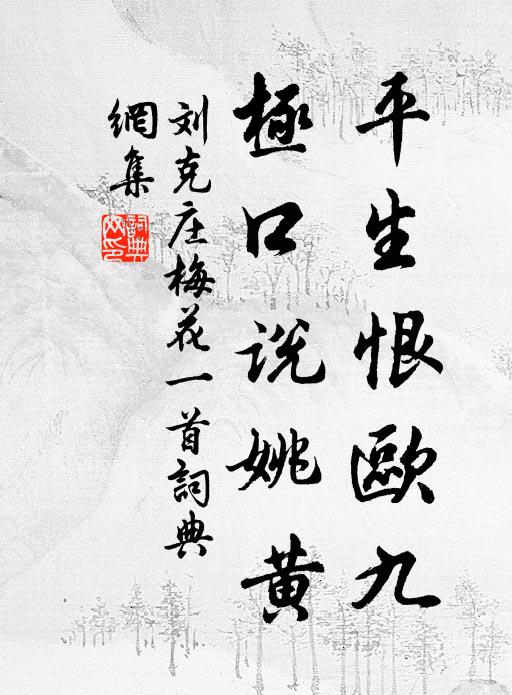 平生恨歐九
極口说姚黄
刘克庄梅花一首詞典
網集
詞典網印